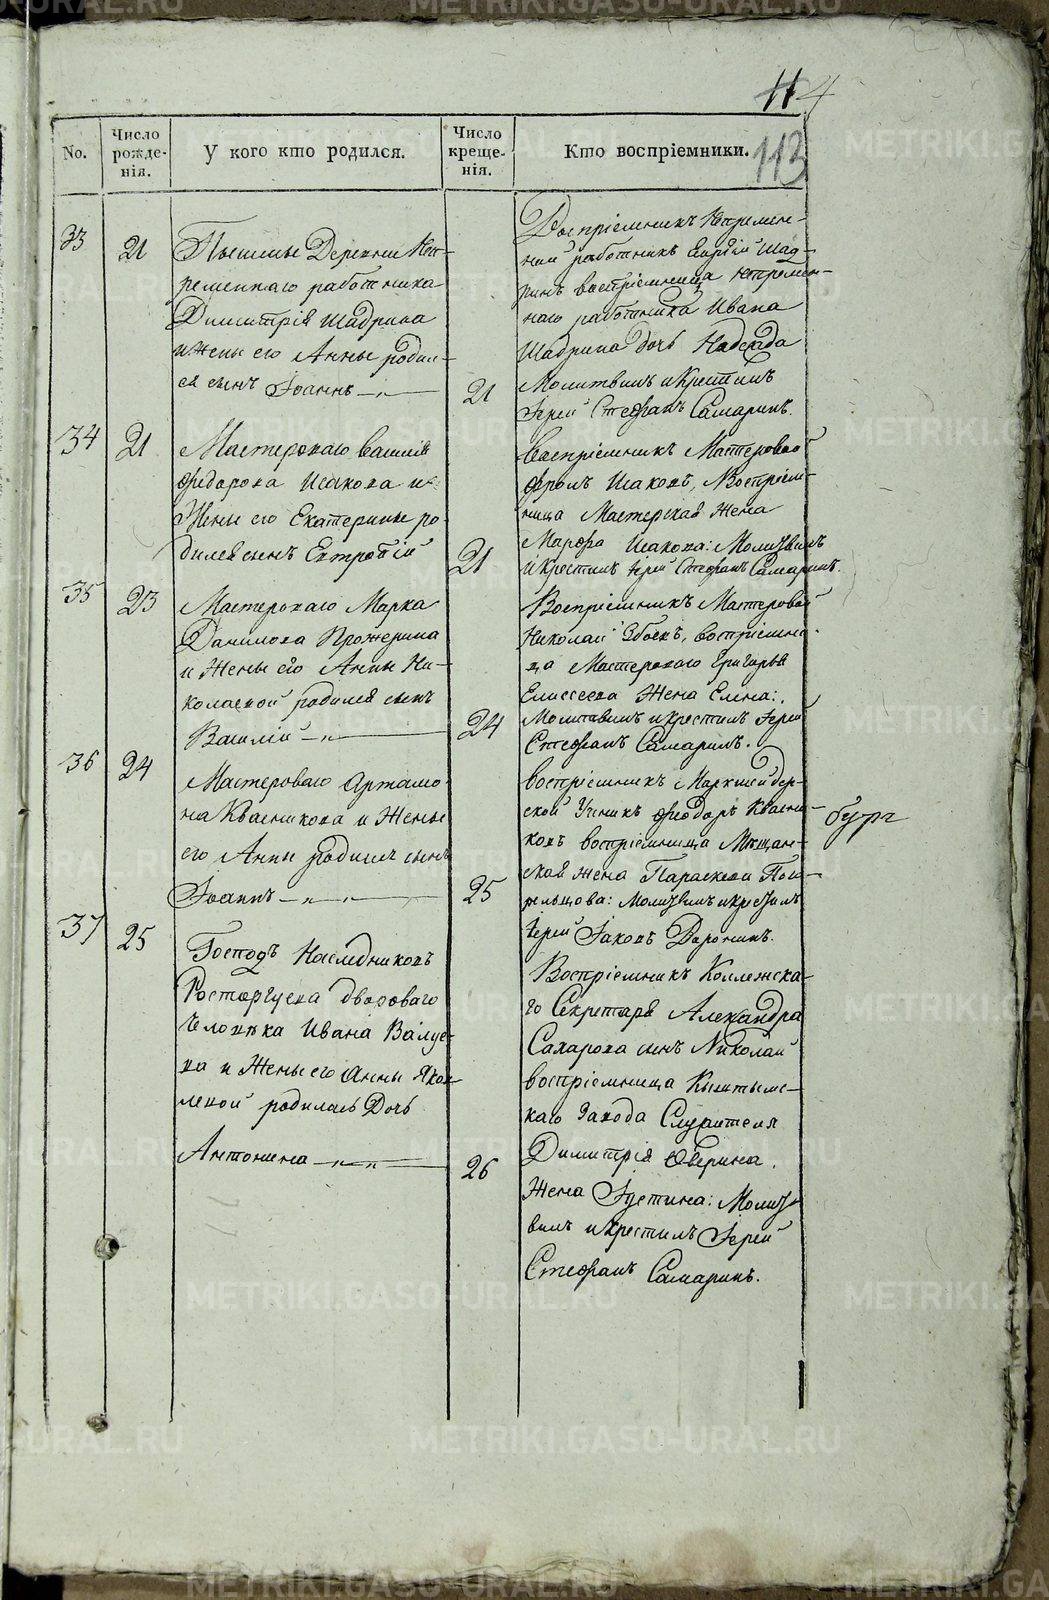 114
113
No.
Число рожде-нія.
У кого кто родился.
Число креще-нія.
Кто воспріемники.
33
21
Пышмы Деревни Неп-
ременнаго работника
Димитрія Шадрина
и жены его Анны родил-
ся сынъ Іоаннъ
21
Воспріемникъ Непремен-
ный работникъ Георгій Шад-
ринъ воспріемница непремен-
наго работника Ивана
Шадрина дочь Надежда
Молитвилъ и Крестилъ
Іерей Стефанъ Самаринъ.
34
21
Мастероваго Василія
Федорова Исакова и
Жены его Екатерины ро-
дился сынъ Евтропій
21
Воспріемникъ Мастеровой
Фролъ Исаковъ, Воспріем-
ница Мастерская жена
Марфа Исакова: Молитвилъ
и Крестилъ Іерей Стефанъ Самаринъ.
35
23
Мастероваго Марка
Данилова Прожерина
и Жены его Анны Ни-
колаевой родился сынъ
Василій
24
Воспріемникъ Мастеровой
Николай Збоевъ, воспріемни-
ца Мастероваго Григорья
Елисеева Жена Елена:
Молитвилъ и крестилъ Іерей
Стефанъ Самаринъ.
36
24
Мастероваго Артамо-
на Квасникова и Жены
его Анны родился сынъ
Іоаннъ
25
Воспріемникъ Маркшейдер-
ской Ученикъ Феодоръ Квасни-
ковъ воспріемница Мещан-
ская жена Параскева
Молитвилъ и крестилъ
Іерей Іаковъ Доронинъ.
бург
37
25
Господъ Наследниковъ
Расторгуева двороваго
Человека Ивана Валуе-
ва и Жены его Анны Яков-
левой родилась Дочь
Антонина
26
Воспріемникъ Коллежска-
го Секретаря Александра
Сахарова сынъ Николай
воспріемница Кыштымс-
каго Завода Служителя
Димитрія Юверина
Жена Іустина: Молит-
вилъ и крестилъ Іерей
Стефанъ Самаринъ.
METRIKI.GASO-URAL.RU